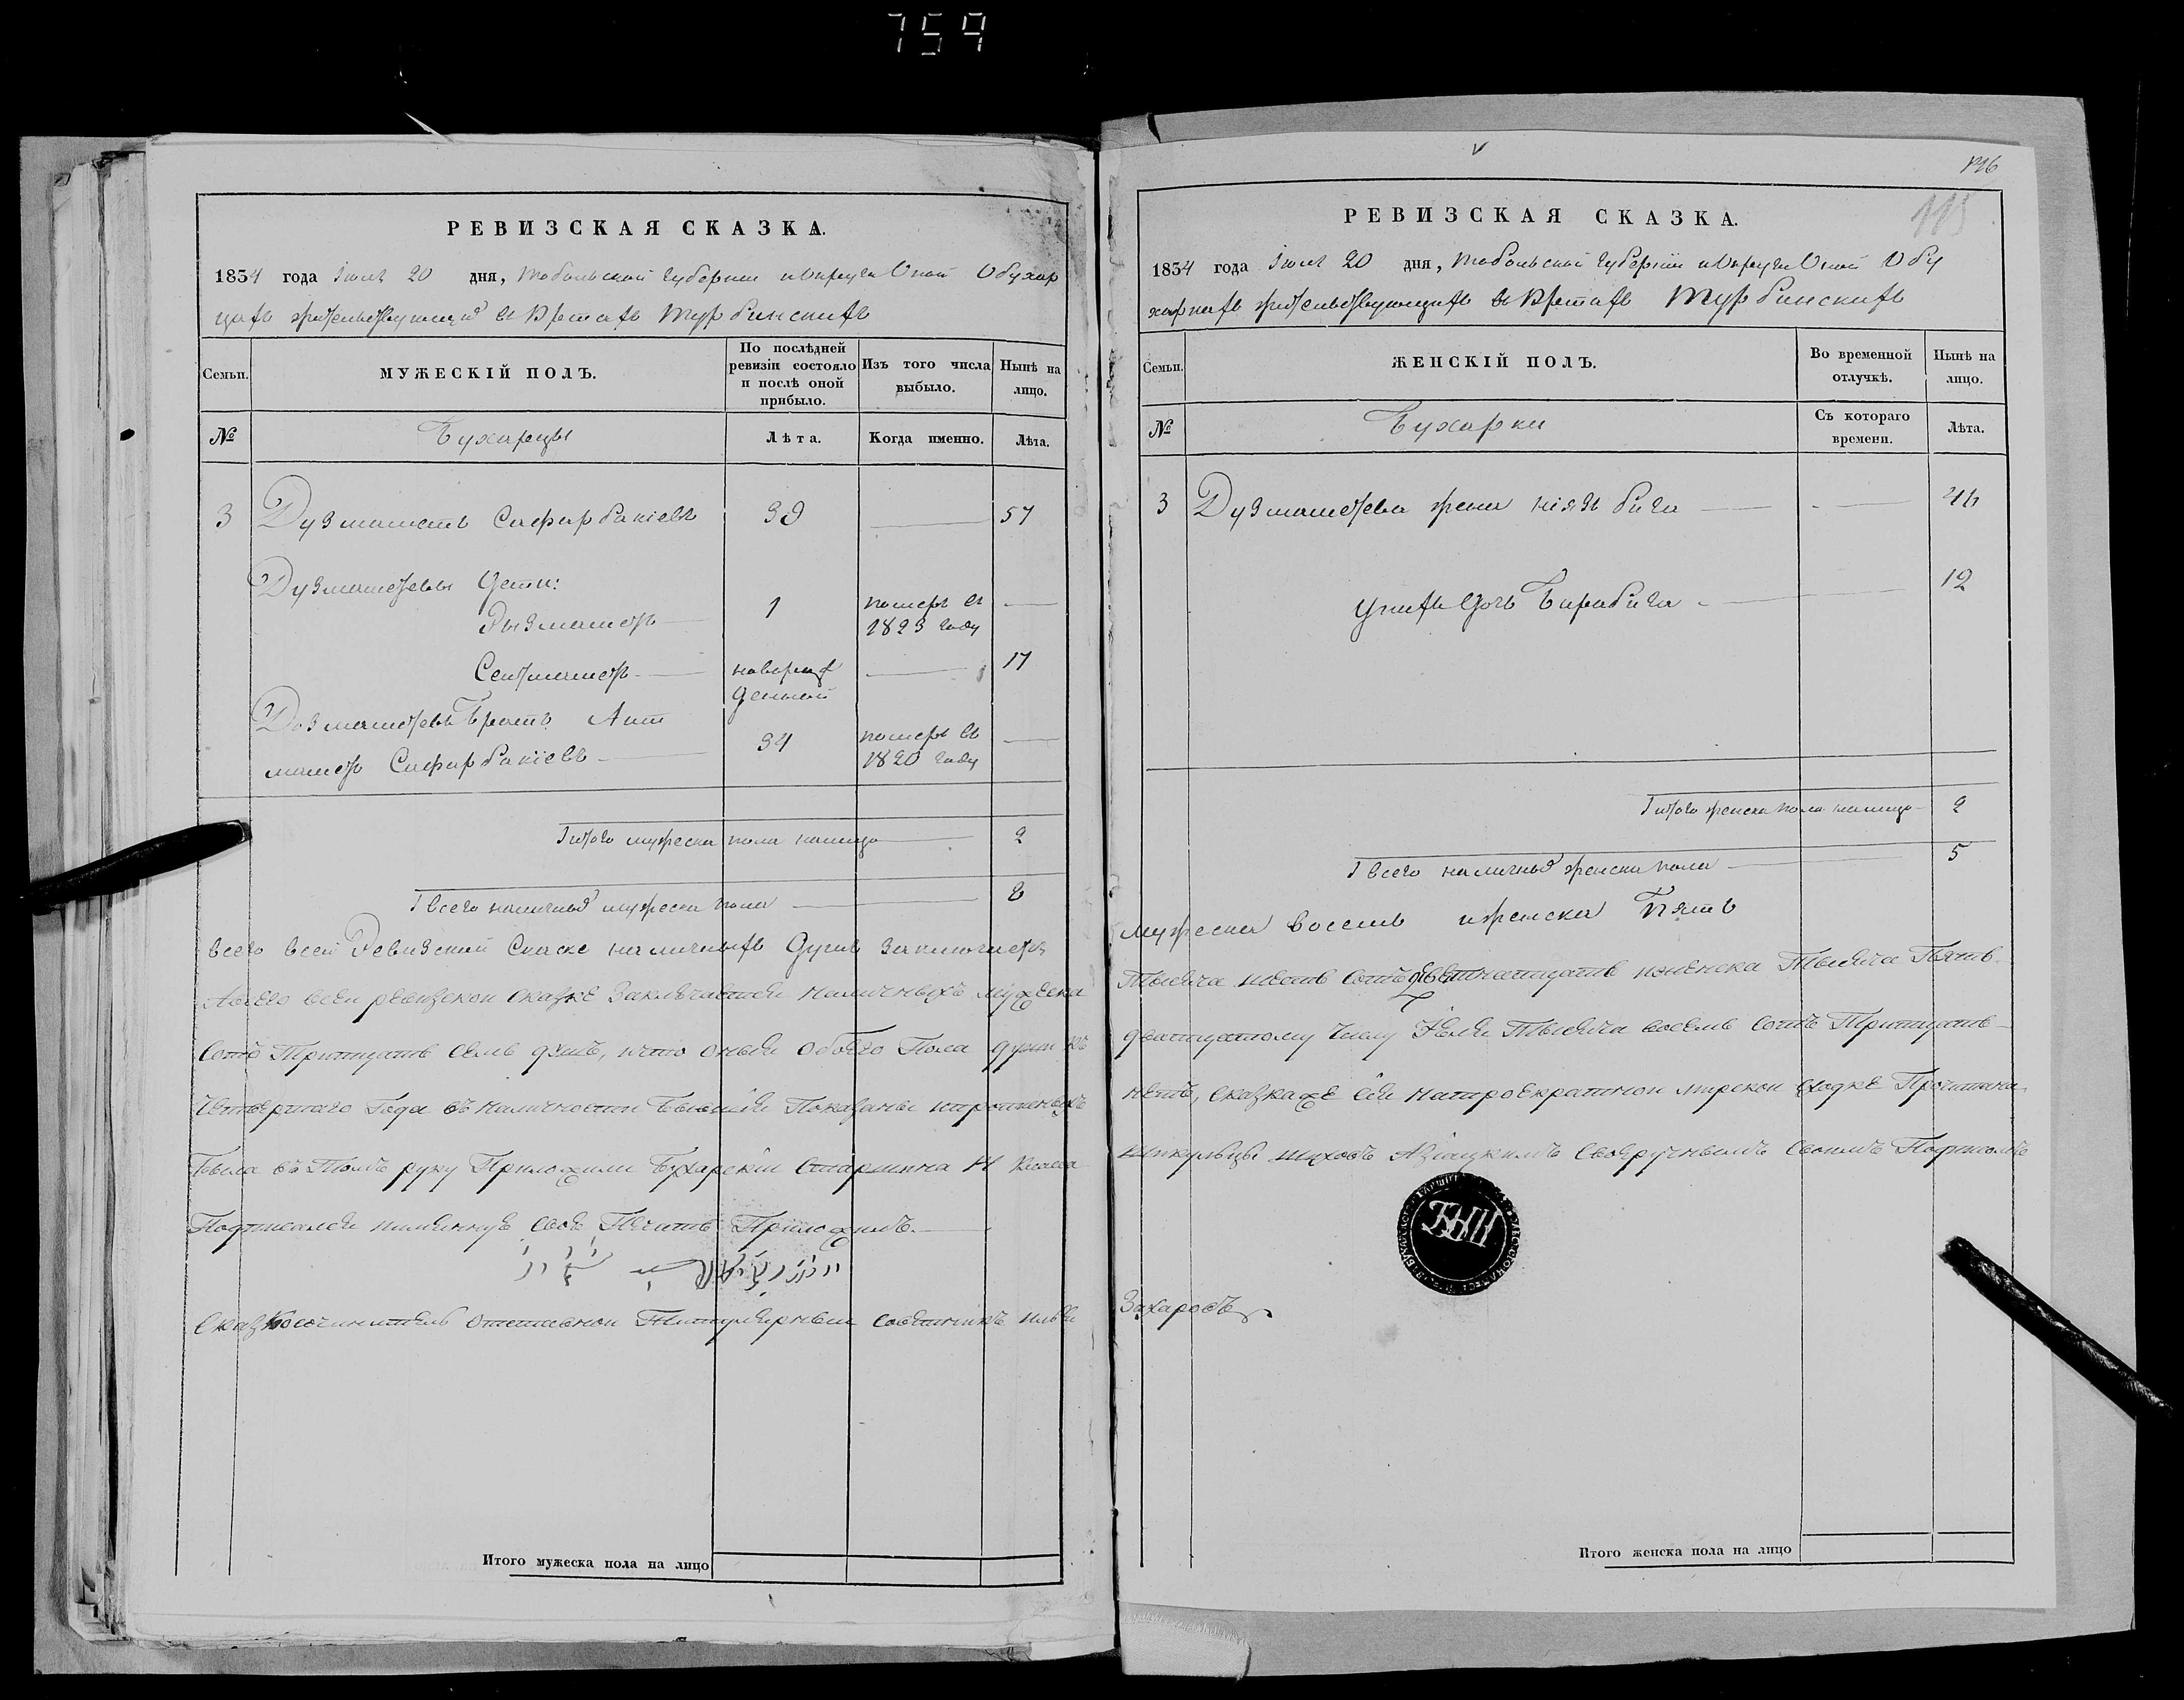 759
РЕВИЗСКАЯ СКАЗКА.
1834 года Іюля 20 дня, Тобольской Губерніи и Округи Оной О бухар
цахъ жительствующихъ въ Юртахъ Турбинскихъ
Семьи.
МУЖЕСКІЙ ПОЛЪ.
По послѣдней ревизіи состояло и послѣ оной прибыло.
Изъ того числа выбыло.
Нынѣ на лицо.
№
Бухарцы
Лѣта.
Когда именно.
Лѣта.
3 Дузмаметь Сафарбакіевъ 39 57
Дузмаметевы Дети:
Рызмаметъ 1 померъ въ 1823 году
Сеитмаметъ новорож денной 17
Дозмаметевъ Братъ Аит
маметъ Сафарбакіевъ 34 померъ въ 1820 году
Итого мужеска пола налицо 2
Всего наличныхъ мужеска пола 8
всего всей Ревизской Сказке наличныхъ Душъ заключается
Авсего всеи ревизскои сказке заключается наличныхъ мужеска
сотъ Тритцать семь душъ, ичто оныя обоего Пола души къ
четвертаго Года въ наличности бывшія Показаны ипрописныхъ
была въ Томъ руку Приложили Бухарскіи Старшина
Подписался именную свою Печать Приложилъ.
Сказкосочинитель отставной Титулярныи советникъ
146
115
РЕВИЗСКАЯ СКАЗКА.
1834 года Іюля 20 дня, Тобольской Губерніи и Округи Оной О бу
харкахъ жительствующихъ въ Юртахъ Турбинскихъ
Семьи.
ЖЕНСКІЙ ПОЛЪ.
Во временной отлучкѣ.
Нынѣ на лицо.
№
Бухарки
Съ котораго времени.
Лѣта.
3 Дузмаметева жена Ніязь бича 46
У нихъ Дочь Бирабича 12
Итого женска пола налицо 2
Всего наличныхъ женска пола 5
мужеска восемь и женска Пять
Тысяча шесть сотъ иженска Тысяча Пять
дватцатому числу Іюля Тысяча восемь сотъ Тритцать
нетъ, сказкаже сія натроекратнои мирскои сходке Прочитана
шиховъ Азіацкимъ своеручнымъ своимъ Подписомъ
Захаровъ
Итого мужеска пола на лицо
Итого женска пола на лицо